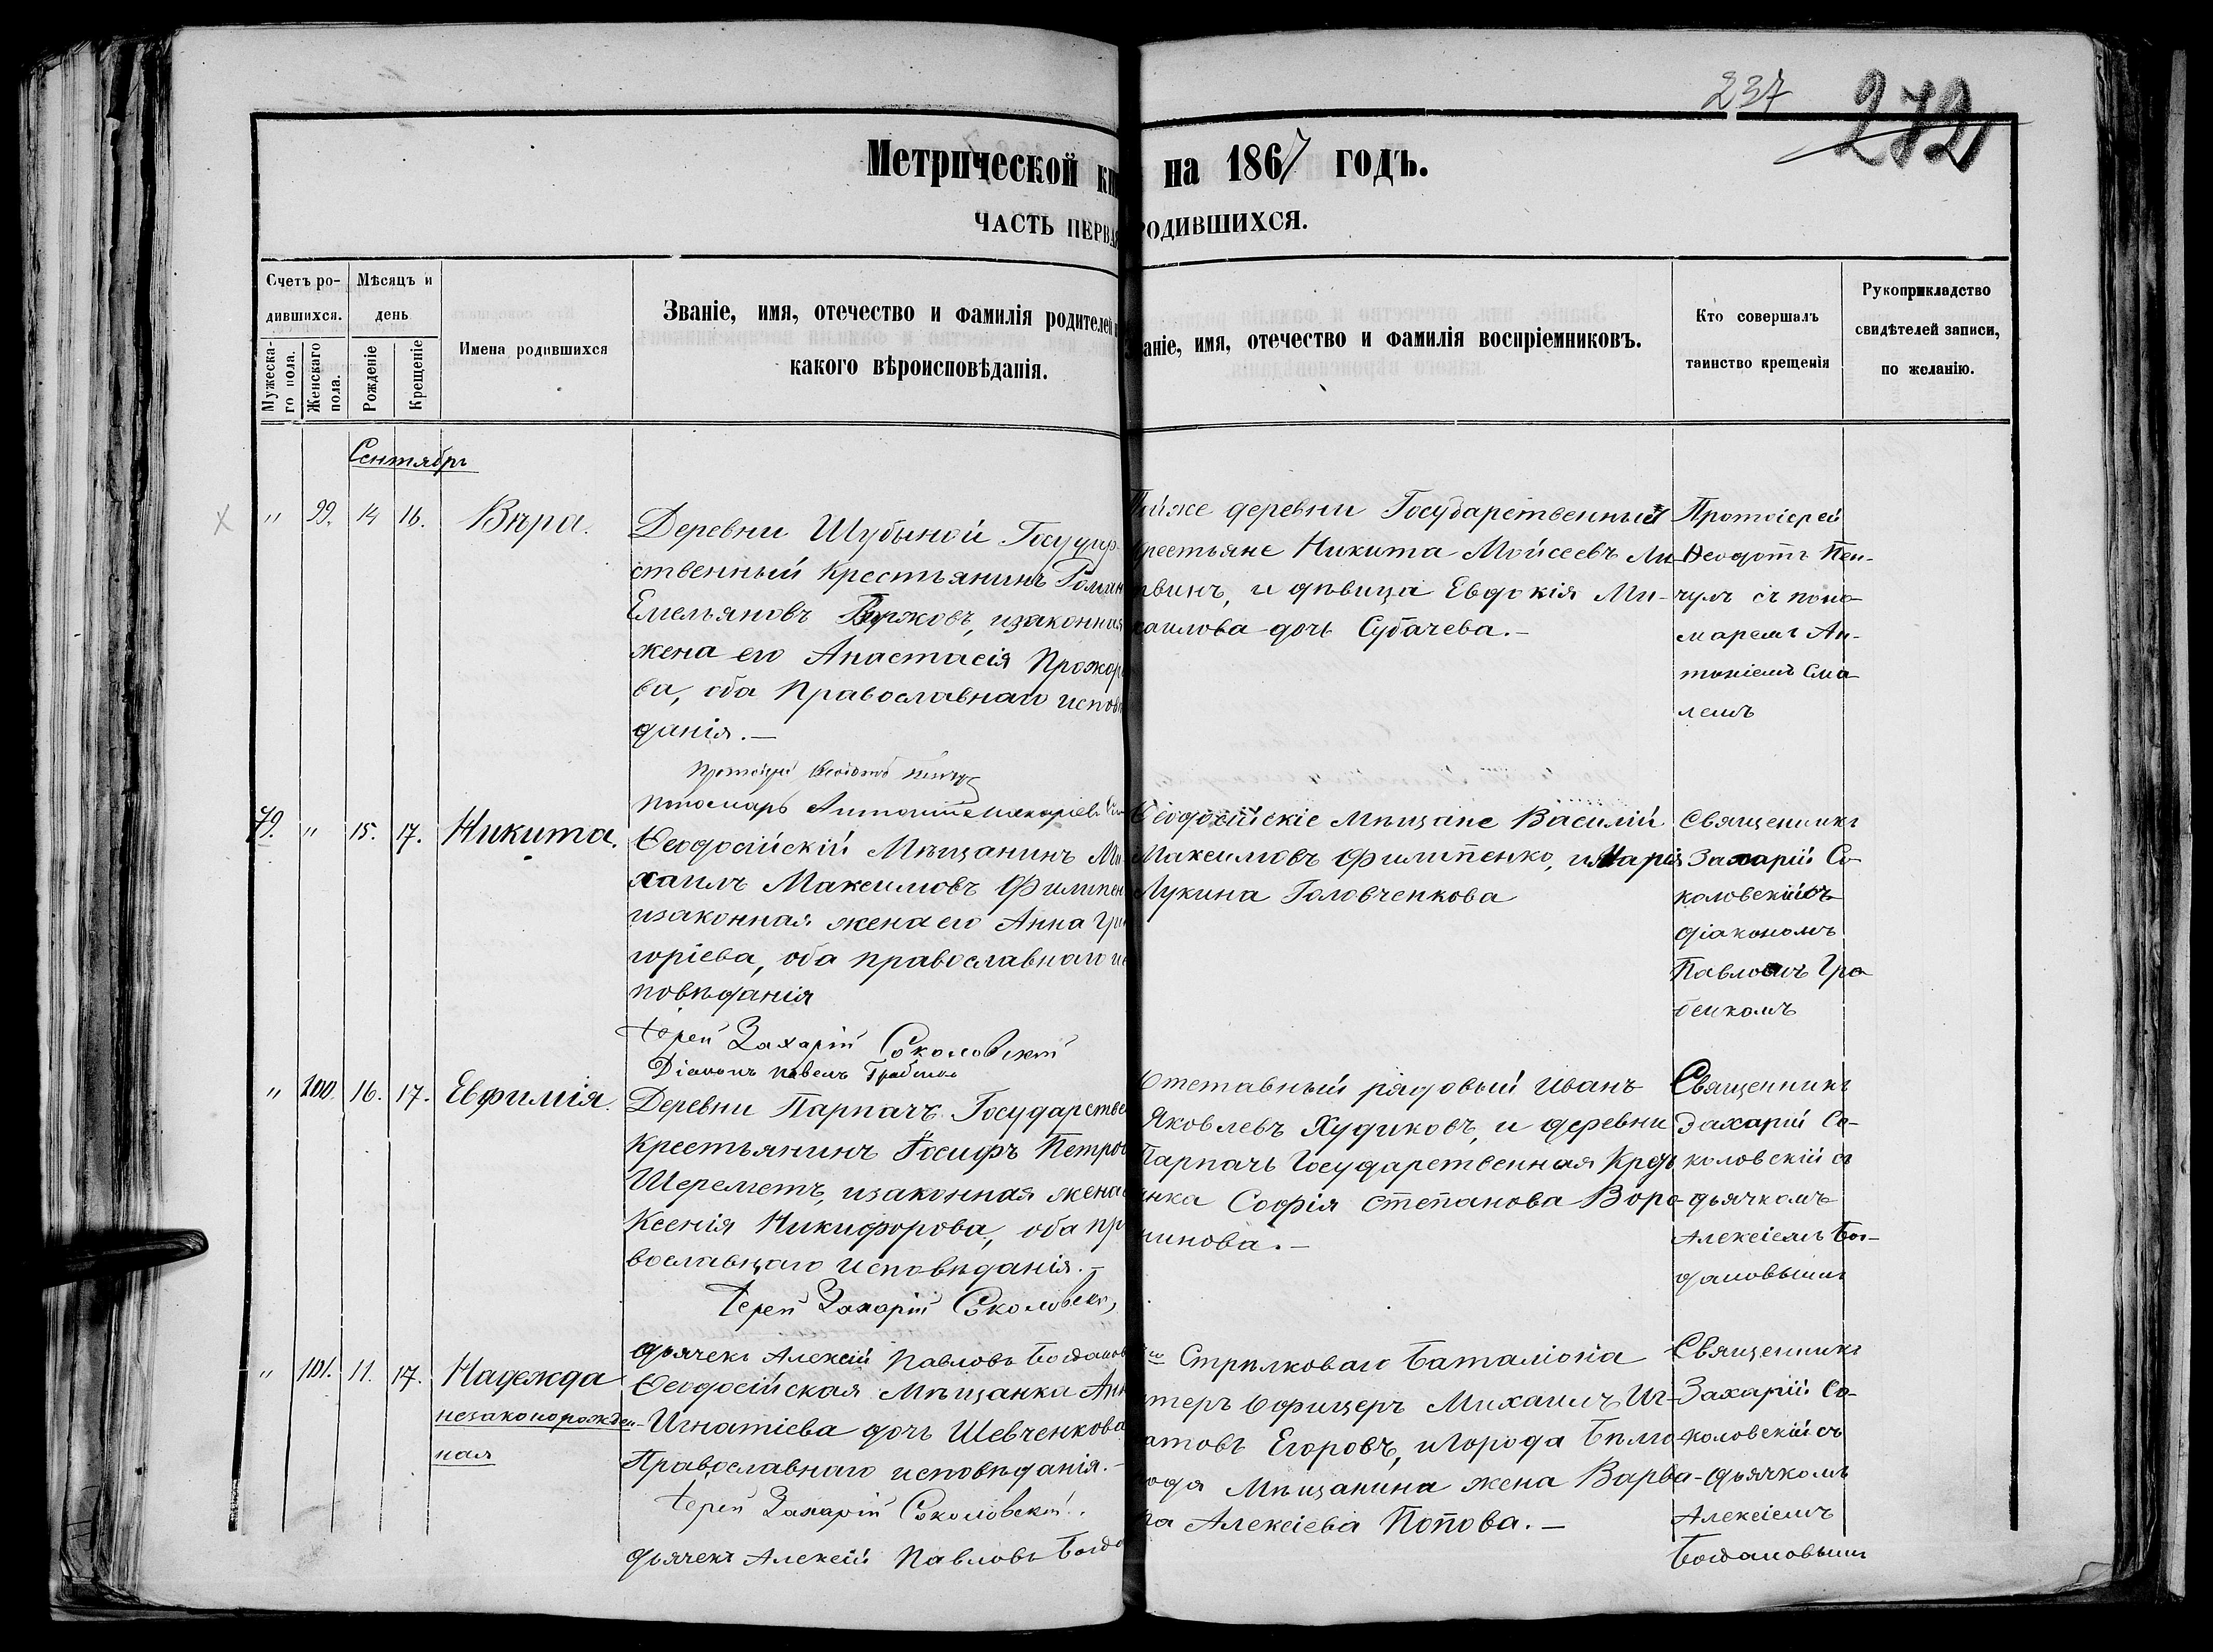 237 272
Метрической кн на 1867 годъ.
ЧАСТЬ ПЕРВАЯ РОДИВШИХСЯ.
Счетъ ро-
дившихся.
Мужеска-
го пола.
Женскаго
пола.
Мѣсяцъ и
день
Рожденіе
Крещеніе
Имена родившихся
Званіе, имя, отечество и фамилія родителей и
какого вѣроисповѣданія.
аніе, имя, отечество и фамилія воспріемниковъ.
Кто совершалъ
таинство крещенія
Рукоприкладство
свидѣтелей записи,
по желанію.
Сентябрь
" 99. 14 16. Вѣра.
Деревни Шубыной Государ-
ственный крестьянинъ Роман
Емельяновъ изаконная
жена его Анастасія Прохор
ва, оба Православнаго испов
данія.—
Протоіерей
Пономарь
Тойже деревни Государственный
крестьяне Никита Мойсеевъ Ли-
твинъ, и дѣвица Евдокія Ми-
хаилова дочь Субачева.—
Протоіерей
Ѳеодотъ Пен-
чулъ съ поно-
маремъ Ан-
тоніемъ Сма-
лемъ
79. " 15. 17. Никита.
Ѳеодосійскій Мѣщанинъ Ми
хаилъ Максимовъ Филипен
изаконная жена его Анна Гри
горіева, оба православнаго ис
повѣданія
Іерей Захарій Соколовскій
Діаконъ Павелъ Грабенко
Ѳеодосійскіе Мѣщане Василій
Максимовъ Филипенко, иМарія
Лукина Головченкова
Священникъ
Захарій Со-
коловскійсъ
діакономъ
Павломъ Гра-
бенкомъ
" 100. 16. 17. Евфимія.
Деревни Парпачъ Государстве
Крестьянинъ Іосифъ Петров
Шереметъ, изаконная жена е
Ксенія Никифорова, оба пр
вославнаго исповѣданія.—
Іерей Захарій Соколовскі
дьячекъ Алексій Павловъ Богданов
Отставный рядовый Иванъ
Яковлевъ Худиковъ, и деревни
Парпачъ Государственная Кресть
янка Софія Степанова Воро-
нинова.—
Священникъ
Захарій Со-
коловскій съ
дьячкомъ
Алексіемъ Бог-
дановымъ
" 101. 11. 17. Надежда
незаконорожден-
ная
Ѳеодосійская Мѣщанка Анн
Игнатіева дочь Шевченкова
Православнаго исповѣданія.—
Іерей Захарій Соколовскій.
дьячекъ Алексій Павловъ Богда
го Стрѣлковаго Баталіона
Унтеръ Офицеръ Михаилъ Иг-
натовъ Егоровъ, иГорода Бѣлго
рода Мѣщанина жена Варва-
ра Алексіева Попова.—
Священникъ
Захарій Со-
коловскій съ
дьячкомъ
Алексіемъ
Богдановымъ